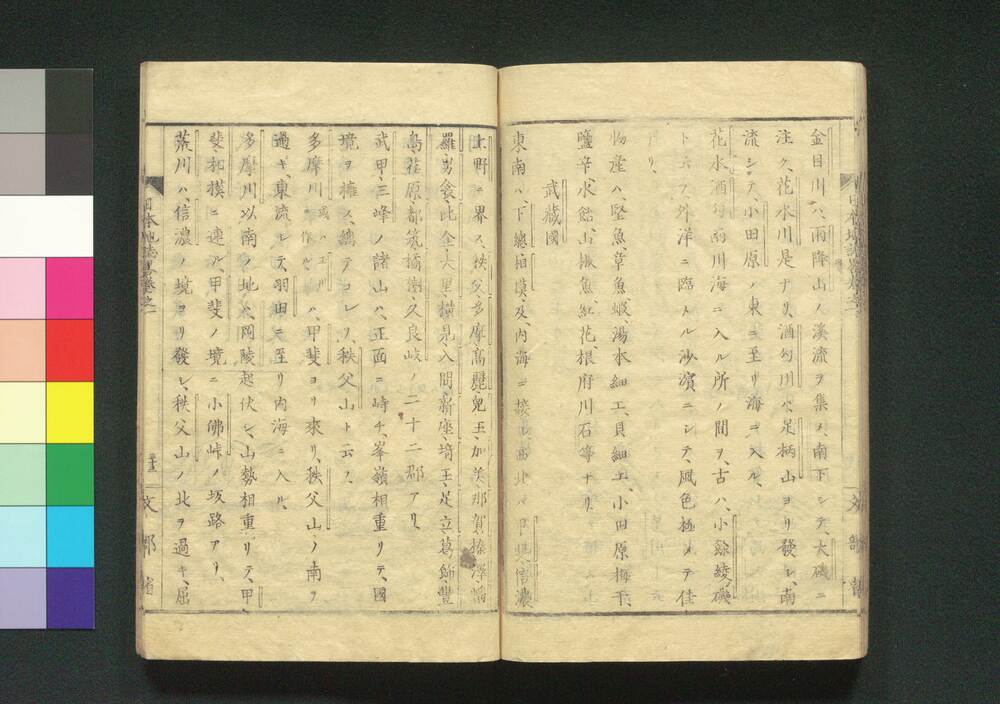 金目川ハ、雨降山ノ溪流ヲ集メ、南下シテ、大磯ニ
注ク、花水川是ナリ、酒匂川ハ、足柄山ヨリ發シ、南
流シテ、小田原ノ東ニ至リ海ニ入ル、
花水酒匂兩川海ニ入ル所ノ間ヲ、古ハ、小餘綾磯
ト云フ、外洋ニ臨ミタル沙濱ニシテ、風色極メテ佳
ナリ、
物産ハ、堅魚、章魚、蝦、湯本細工、貝細工、小田原梅干、
鹽辛、水飴、山椒魚、紅花、根府川石等ナリ、
武藏國
東南ハ、下總相摸及内海ニ接シ、西北ハ甲斐信濃
上野ニ界ス、秩父、多摩、高麗、兒玉、加美、那賀、榛澤、幡
羅、男衾、比企、大里、横見、入間、新座、埼玉、足立、葛飾、豐
島、荏原、都筑、橘樹、久良岐ノ二十二郡アリ、
武甲、三峰ノ諸山ハ、正面ニ峙チ、峯嶺相重リテ、國
境ヲ擁ス、總テコレヲ、秩父山ト云フ、
多摩川 或ハ玉川ニ作ル ハ、甲斐ヨリ來リ、秩父山ノ南ヲ
過ギ、東流シテ、羽田ニ至リ内海ニ入ル、
多摩川以南ノ地ハ、岡陵起伏シ、山勢相重リテ、甲
斐相摸ニ連ル、甲斐ノ境ニ小佛峠ノ坂路アリ、
荒川ハ、信濃ノ境ヨリ發シ、秩父山ノ北ヲ過キ、屈
文部省